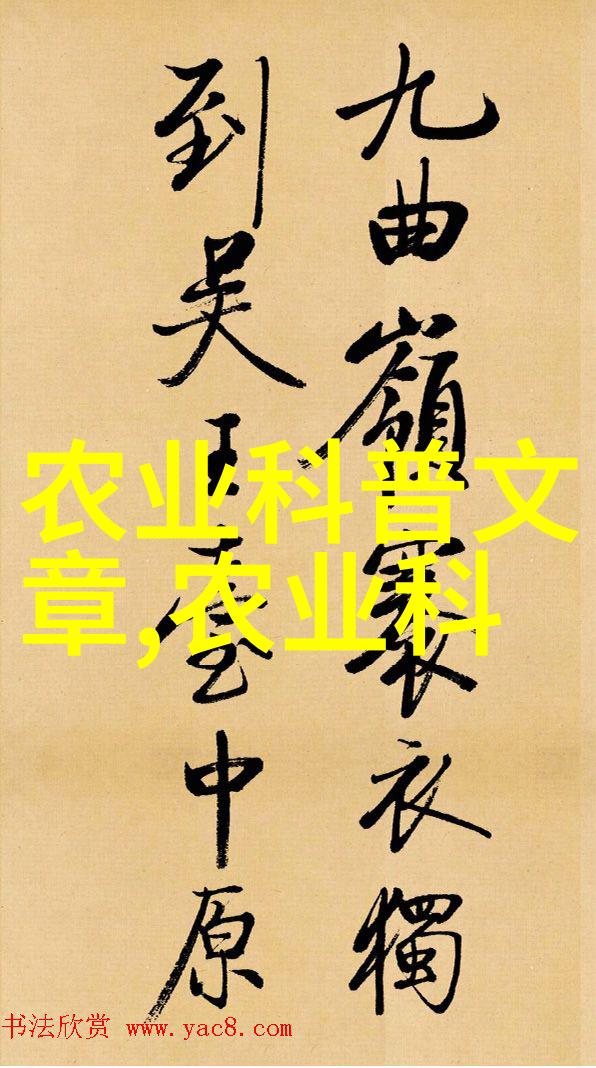 九曲嶺褰衣獨
到吴王臺中原
农业科普文
章,农业科
书法欣赏 www.yac8.com